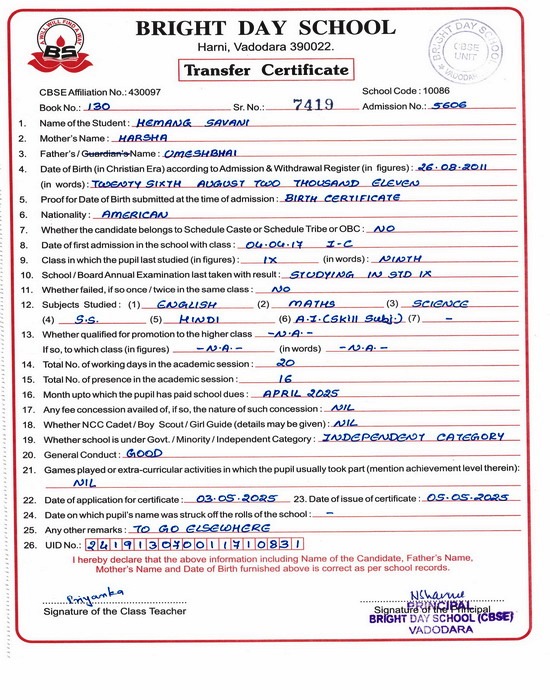 A WILL WILL FIND A WAY
BS
BRIGHT DAY SCHOOL
Harni, Vadodara 390022.
BRIGHT DAY SCHOOL
CBSE
UNIT
VADODARA
Transfer Certificate
CBSE Affiliation No.: 430097 School Code : 10086
Book No.: 130 Sr. No.: 7419 Admission No.: 5606
1. Name of the Student : HEMANG SAVANI
2. Mother's Name : HARSHA
3. Father's / Guardian's Name : UMESHBHAI
4. Date of Birth (in Christian Era) according to Admission & Withdrawal Register (in figures) : 26.08.2011
(in words) : TWENTY SIXTH AUGUST TWO THOUSAND ELEVEN
5. Proof for Date of Birth submitted at the time of admission : BIRTH CERTIFICATE
6. Nationality : AMERICAN
7. Whether the candidate belongs to Schedule Caste or Schedule Tribe or OBC : NO
8. Date of first admission in the school with class : 04.04.17 I-C
9. Class in which the pupil last studied (in figures) : IX (in words) : NINTH
10. School / Board Annual Examination last taken with result : STUDYING IN STD IX
11. Whether failed, if so once / twice in the same class : NO
12. Subjects Studied : (1) ENGLISH (2) MATHS (3) SCIENCE
(4) S.S. (5) HINDI (6) A.I.(Skill Subj.) (7) -
13. Whether qualified for promotion to the higher class -N.A.-
If so, to which class (in figures) -N.A.- (in words) -N.A.-
14. Total No. of working days in the academic session : 20
15. Total No. of presence in the academic session : 16
16. Month upto which the pupil has paid school dues : APRIL 2025
17. Any fee concession availed of, if so, the nature of such concession : NIL
18. Whether NCC Cadet / Boy Scout / Girl Guide (details may be given) : NIL
19. Whether school is under Govt. / Minority / Independent Category : INDEPENDENT CATEGORY
20. General Conduct : GOOD
21. Games played or extra-curricular activities in which the pupil usually took part (mention achievement level therein):
NIL
22. Date of application for certificate : 03.05.2025 23. Date of issue of certificate : 05.05.2025
24. Date on which pupil's name was struck off the rolls of the school : -
25. Any other remarks : TO GO ELSEWHERE
26. UID No.: 241913070011710831
I hereby declare that the above information including Name of the Candidate, Father's Name,
Mother's Name and Date of Birth furnished above is correct as per school records.
Priyanka
Signature of the Class Teacher Signature of the Principal
PRINCIPAL
BRIGHT DAY SCHOOL (CBSE)
VADODARA